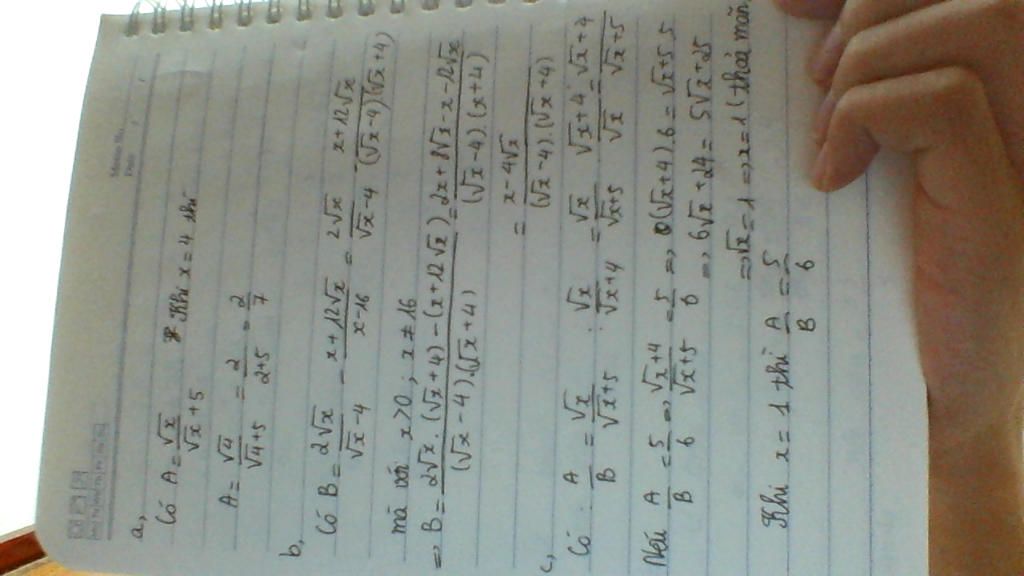 Memo No.
Date
a,
Có A = √x / (√x + 5) Khi x = 4 thì
A = √4 / (√4 + 5) = 2 / (2+5) = 2/7
b,
Có B = 2√x / (√x - 4) - (x + 12√x) / (x - 16) = 2√x / (√x - 4) - (x + 12√x) / ((√x - 4)(√x + 4))
mà với x > 0 ; x ≠ 16
=> B = (2√x . (√x + 4) - (x + 12√x)) / ((√x - 4).(√x + 4)) = (2x + 8√x - x - 12√x) / ((√x - 4).(x + 4))
= (x - 4√x) / ((√x - 4).(√x + 4))
c,
Có : A/B = √x / (√x + 5) : √x / (√x + 4) = √x / (√x + 5) . (√x + 4) / √x = (√x + 4) / (√x + 5)
Nếu A/B = 5/6 => (√x + 4) / (√x + 5) = 5/6 => (√x + 4).6 = √x + 5.5
=> 6√x + 24 = 5√x + 25
=> √x = 1 => x = 1 (thoả mãn
Khi x = 1 thì A/B = 5/6